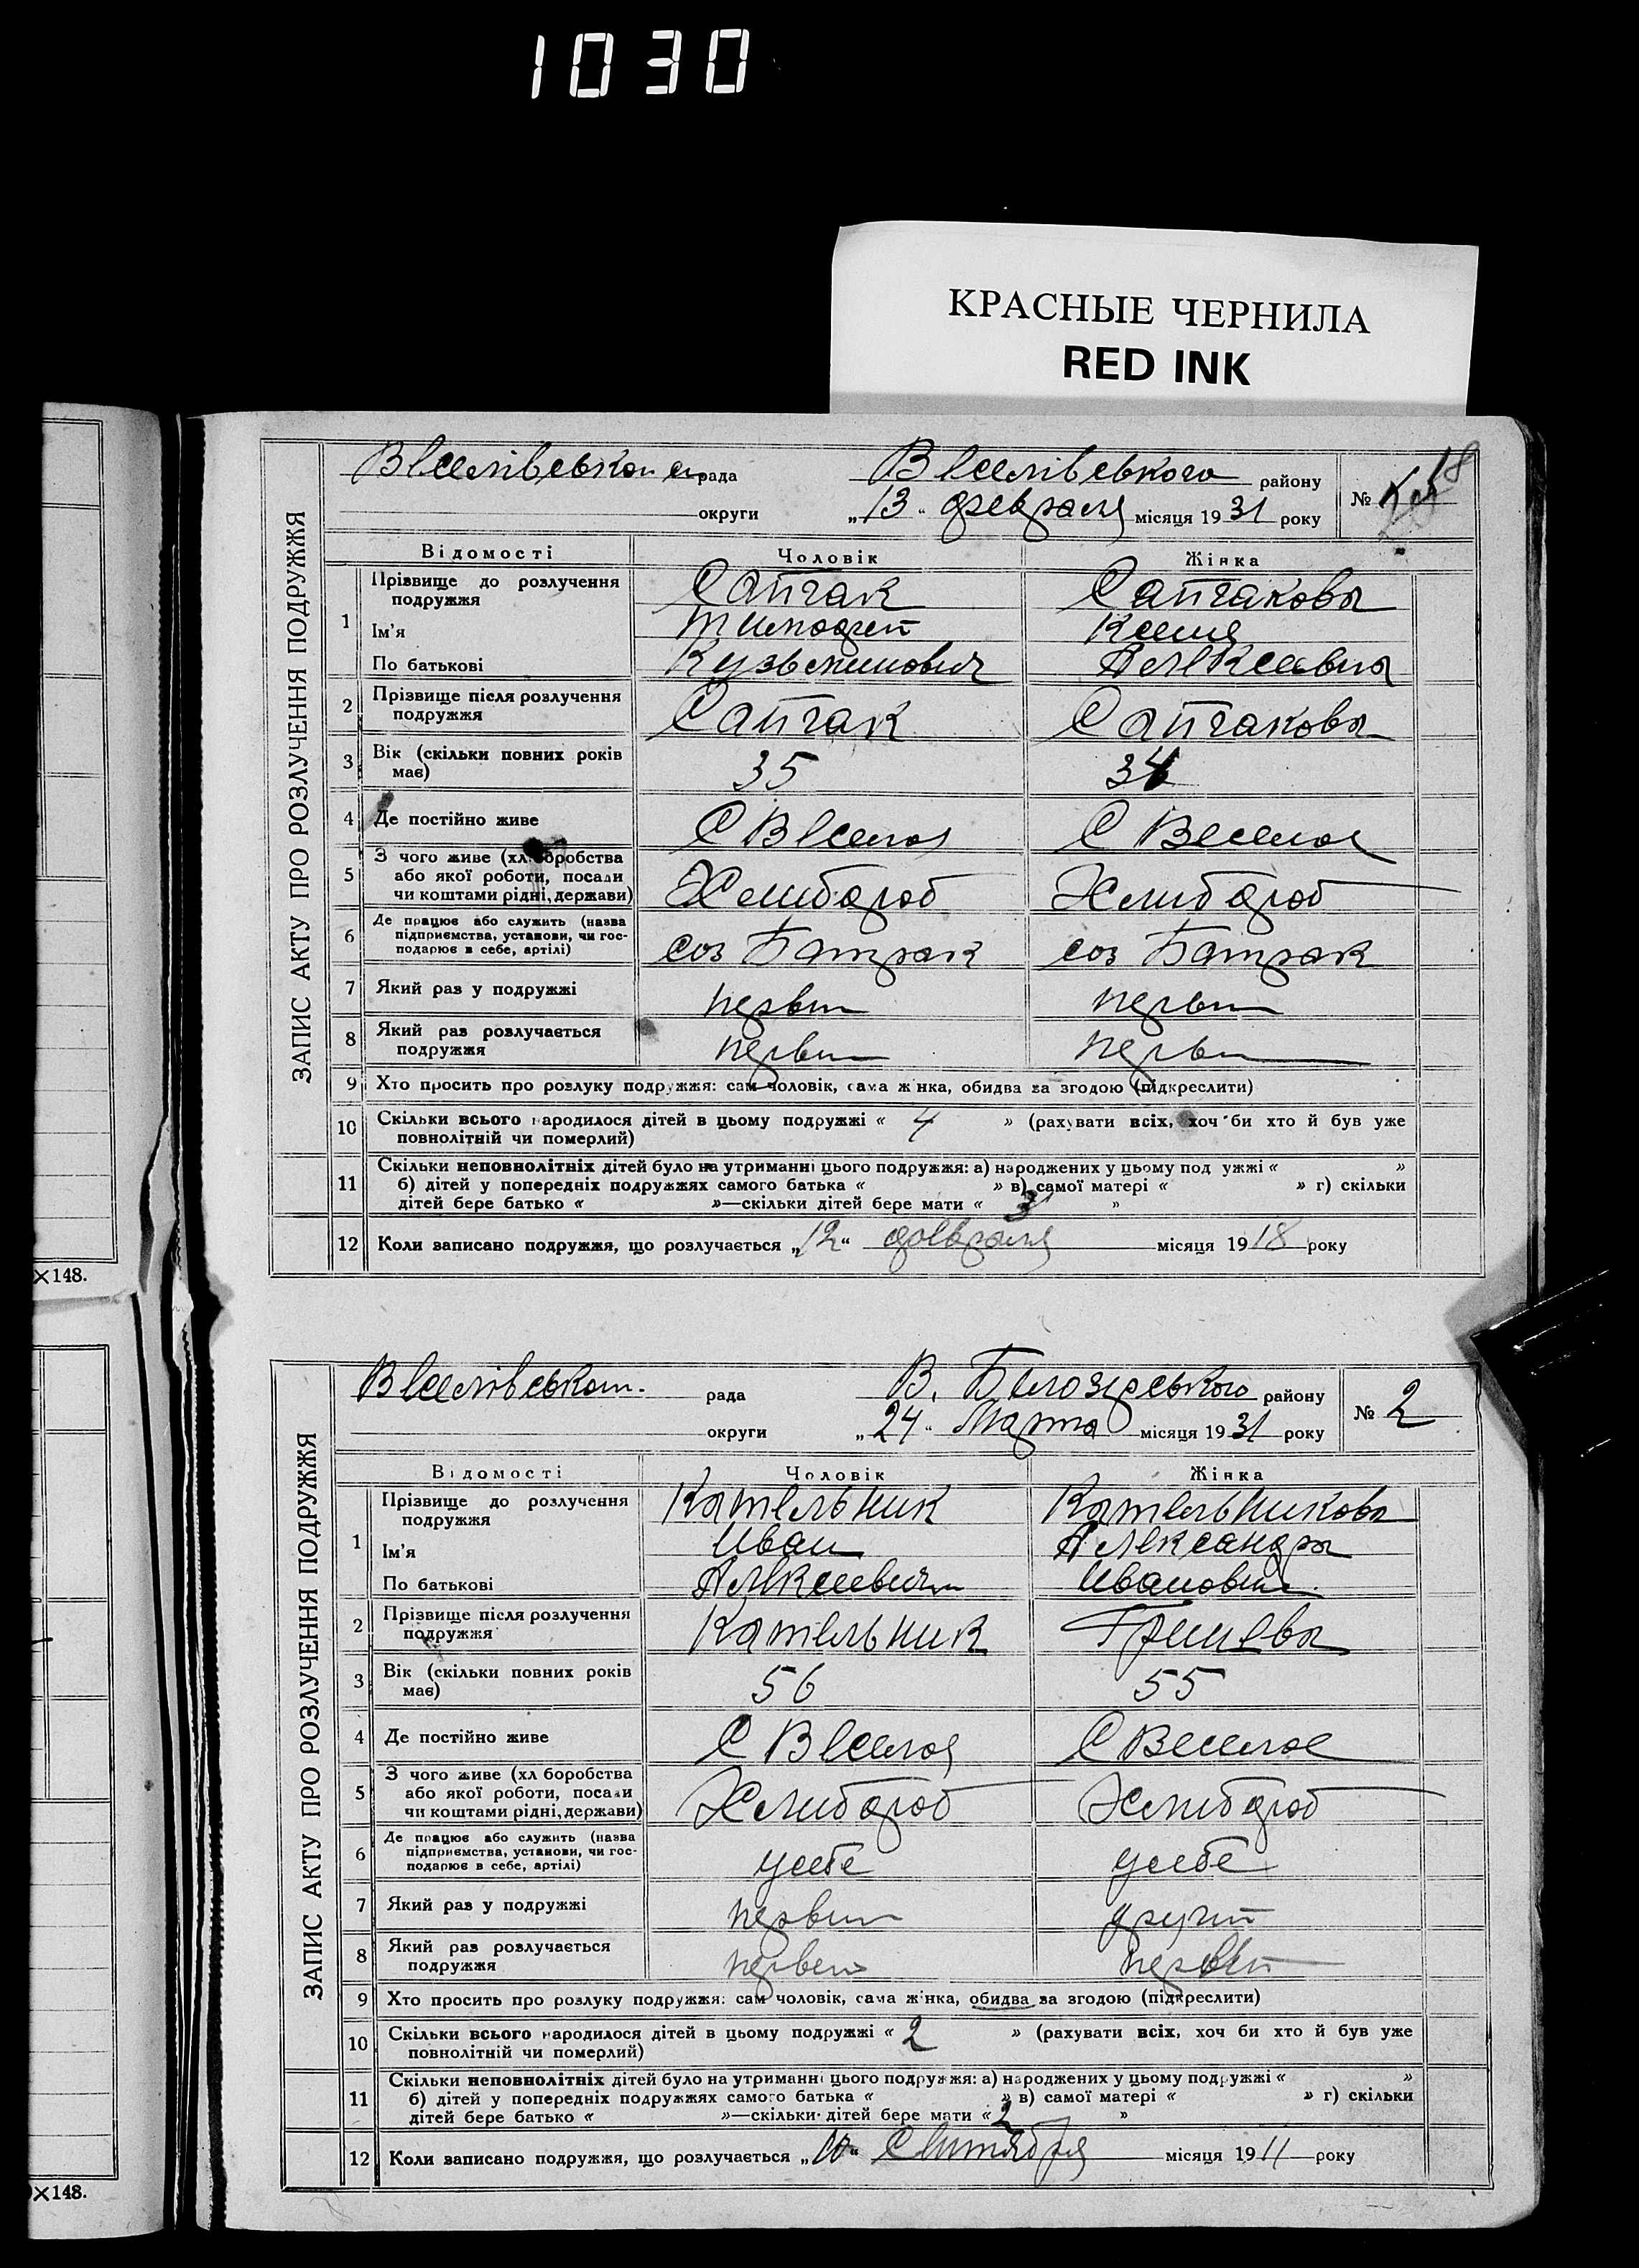 1030
КРАСНЫЕ ЧЕРНИЛА
RED INK
ЗАПИС АКТУ ПРО РОЗЛУЧЕННЯ ПОДРУЖЖЯ
Веселівської с. рада Веселівського району
округи „13“ февраля місяця 1931 року
№
Відомості Чоловік Жінка
1 Прізвище до розлучення Сапчак Сапчакова
подружжя
Ім'я Тимофей Ксения
По батькові Кузьминович Алексеевна
2 Прізвище після розлучення Сапчак Сапчакова
подружжя
3 Вік (скільки повних років 35 34
має)
4 Де постійно живе С Веселое С Веселое
5 З чого живе (хліборобства Хлибороб Хлибороб
або якої роботи, посади
чи коштами рідні, держави)
6 Де працює або служить (назва соз Батрак соз Батрак
підприємства, установи, чи гос-
подарює в себе, артілі)
7 Який раз у подружжі
8 Який раз розлучається
подружжя
9 Хто просить про розлуку подружжя: сам чоловік, сама жінка, обидва за згодою (підкреслити)
10 Скільки всього народилося дітей в цьому подружжі « 4 » (рахувати всіх, хоч би хто й був уже
повнолітній чи померлий)
11 Скільки неповнолітніх дітей було на утриманні цього подружжя: а) народжених у цьому подружжі « »
б) дітей у попередніх подружжях самого батька « » в) самої матері « » г) скільки
дітей бере батько « »—скільки дітей бере мати « 3 »
12 Коли записано подружжя, що розлучається „12“ февраля місяця 1918 року
×148.
ЗАПИС АКТУ ПРО РОЗЛУЧЕННЯ ПОДРУЖЖЯ
рада В. Білозерського району
округи „24“ Марта місяця 1931 року
№ 2
Відомості Чоловік Жінка
1 Прізвище до розлучення Кательник Кательникова
подружжя
Ім'я Иван Александра
По батькові Алексеевич Ивановна
2 Прізвище після розлучення Кательник
подружжя
3 Вік (скільки повних років 56 55
має)
4 Де постійно живе С Веселое С Веселое
5 З чого живе (хліборобства Хлибороб Хлибороб
або якої роботи, посади
чи коштами рідні, держави)
6 Де працює або служить (назва усебе усебе
підприємства, установи, чи гос-
подарює в себе, артілі)
7 Який раз у подружжі
8 Який раз розлучається
подружжя
9 Хто просить про розлуку подружжя: сам чоловік, сама жінка, обидва за згодою (підкреслити)
10 Скільки всього народилося дітей в цьому подружжі « 2 » (рахувати всіх, хоч би хто й був уже
повнолітній чи померлий)
11 Скільки неповнолітніх дітей було на утриманні цього подружжя: а) народжених у цьому подружжі « »
б) дітей у попередніх подружжях самого батька « » в) самої матері « » г) скільки
дітей бере батько « »—скільки дітей бере мати « 2 »
12 Коли записано подружжя, що розлучається „10“ Сентября місяця 1911 року
×148.